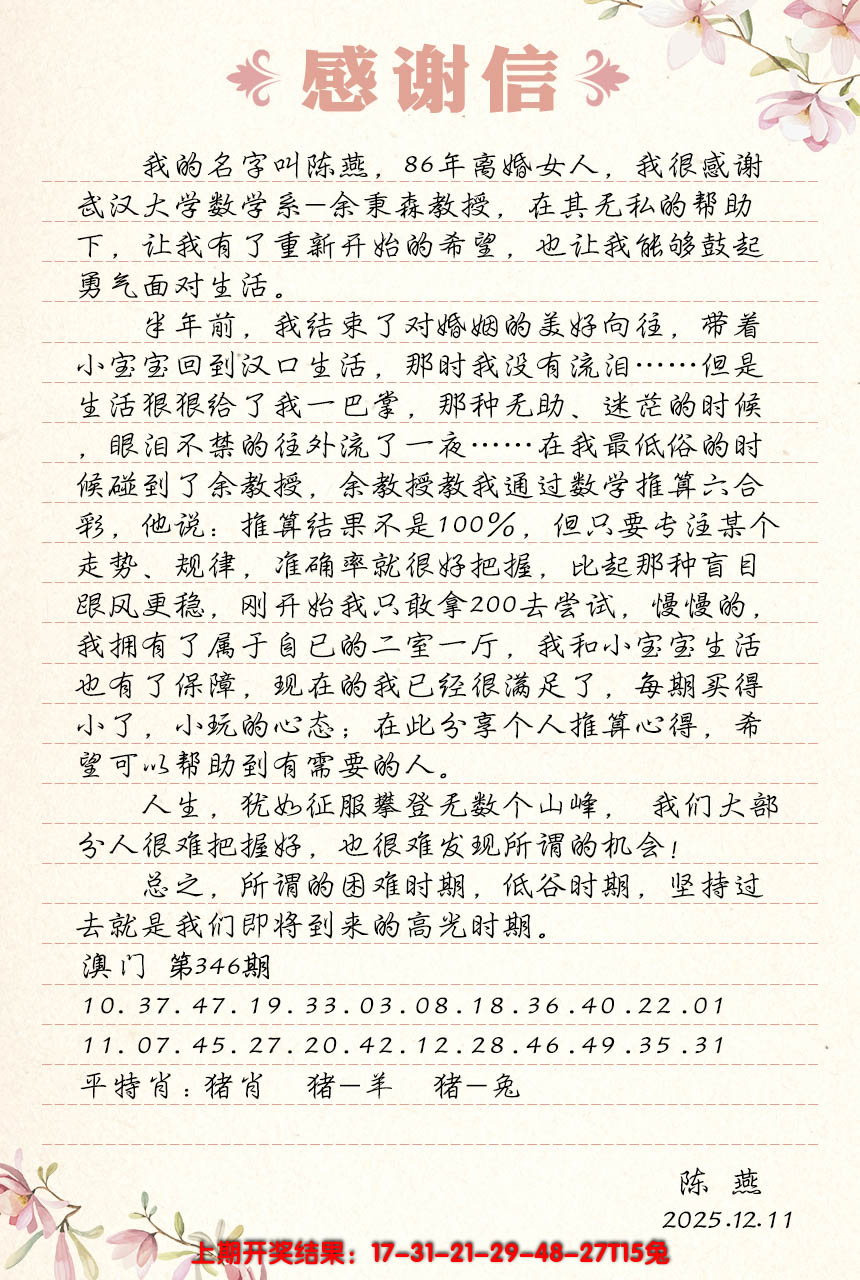 感谢信
我的名字叫陈燕，86年离婚女人，我很感谢
武汉大学数学系—余秉森教授，在其无私的帮助
下，让我有了重新开始的希望，也让我能够鼓起
勇气面对生活。
半年前，我结束了对婚姻的美好向往，带着
小宝宝回到汉口生活，那时我没有流泪……但是
生活狠狠给了我一巴掌，那种无助、迷茫的时候
，眼泪不禁的往外流了一夜……在我最低俗的时
候碰到了余教授，余教授教我通过数学推算六合
彩，他说：推算结果不是100%，但只要专注某个
走势、规律，准确率就很好把握，比起那种盲目
跟风更稳，刚开始我只敢拿200去尝试，慢慢的，
我拥有了属于自已的二室一厅，我和小宝宝生活
也有了保障，现在的我已经很满足了，每期买得
小了，小玩的心态；在此分享个人推算心得，希
望可以帮助到有需要的人。
人生，犹如征服攀登无数个山峰， 我们大部
分人很难把握好，也很难发现所谓的机会！
总之，所谓的困难时期，低谷时期，坚持过
去就是我们即将到来的高光时期。
澳门 第346期
10.37.47.19.33.03.08.18.36.40.22.01
11.07.45.27.20.42.12.28.46.49.35.31
平特肖：猪肖 猪—羊 猪—兔
陈 燕
2025.12.11
上期开奖结果：17-31-21-29-48-27T15兔